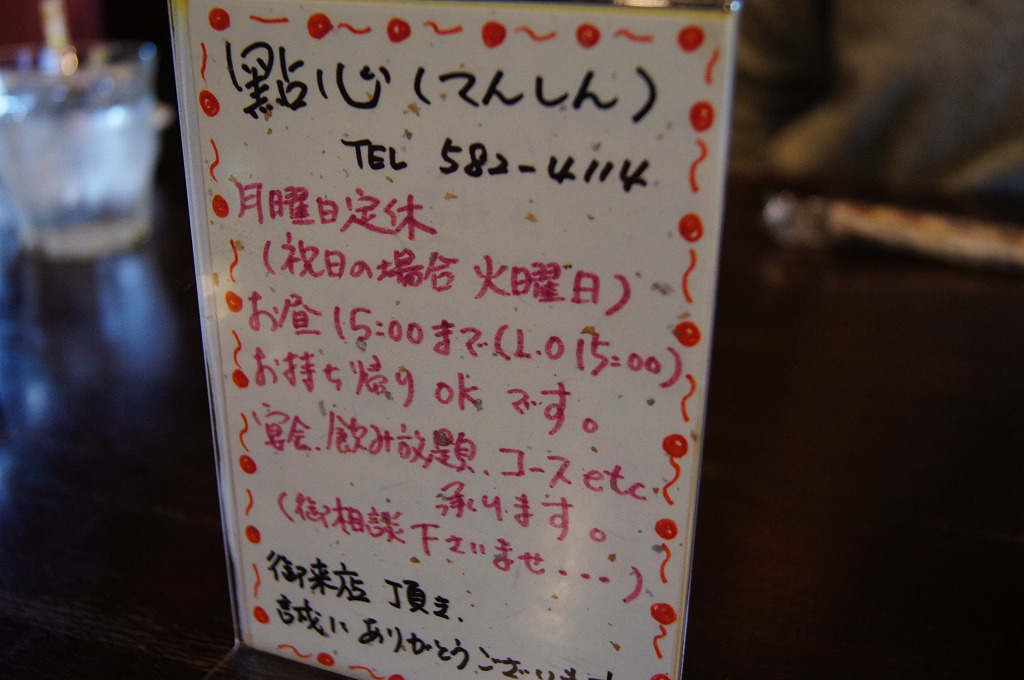 點心(てんしん)
TEL 582-4114
月曜日定休
(祝日の場合 火曜日)
お昼 15:00まで(L.O 15:00)
お持ち帰り OK です。
宴会、飲み放題、コースetc
承ります。
(御相談下さいませ・・・)
御来店 頂き、
誠に ありがとうございます